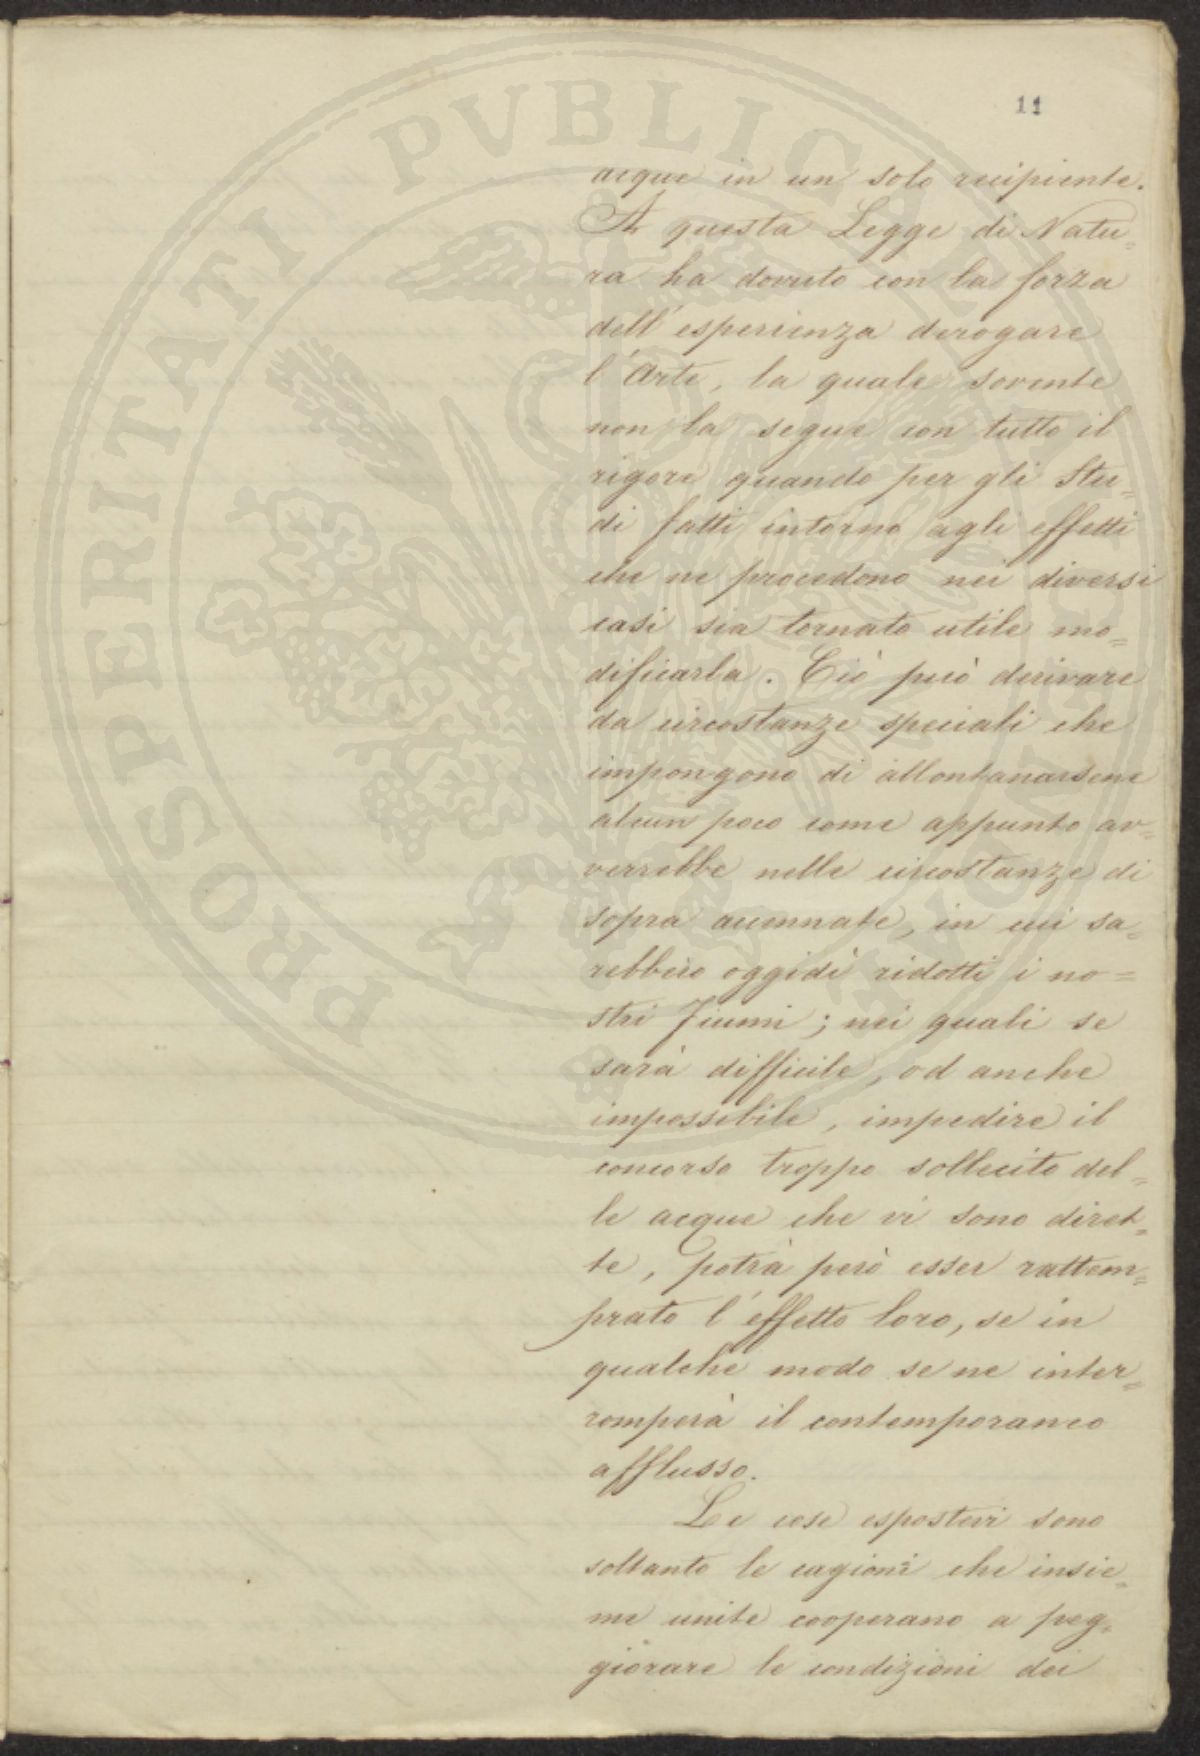 11
acque in un solo recipiente.
A questa Legge di Natu=
ra ha dovuto con la forza
dell'esperienza derogare
l'Arte, la quale sovente
non la segue con tutto il
rigore quando per gli Stu=
di fatti intorno agli effetti
che ne procedono nei diversi
casi sia tornato utile mo=
dificarla. Ciò può derivare
da circostanze speciali che
impongono di allontanarsene
alcun poco come appunto av=
verrebbe nelle circostanze di
sopra accennate, in cui sa=
rebbero oggidì ridotti i no=
stri Fiumi; nei quali se
sarà difficile, od anche
impossibile, impedire il
concorso troppo sollecito del=
le acque che vi sono diret=
te, potrà però esser rattem=
prato l'effetto loro, se in
qualche modo se ne inter=
romperà il contemporaneo
afflusso.
Le cose espostevi sono
soltanto le cagioni che insie=
me unite cooperano a peg=
giorare le condizioni dei
PROSPERITATI PVBLICAE AVGENDAE